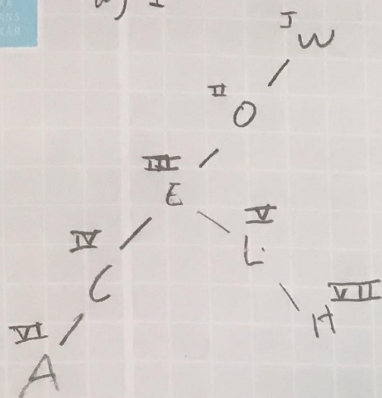 I W
II O
III E
IV C
V L
VI A
VII H